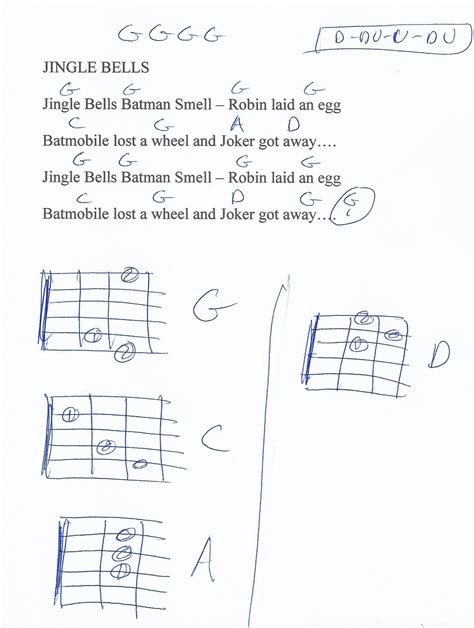 G G G G
D-DU-U-DU
JINGLE BELLS
G G G G
Jingle Bells Batman Smell – Robin laid an egg
C G A D
Batmobile lost a wheel and Joker got away….
G G G G
Jingle Bells Batman Smell – Robin laid an egg
C G D G G
Batmobile lost a wheel and Joker got away….
G
D
C
A